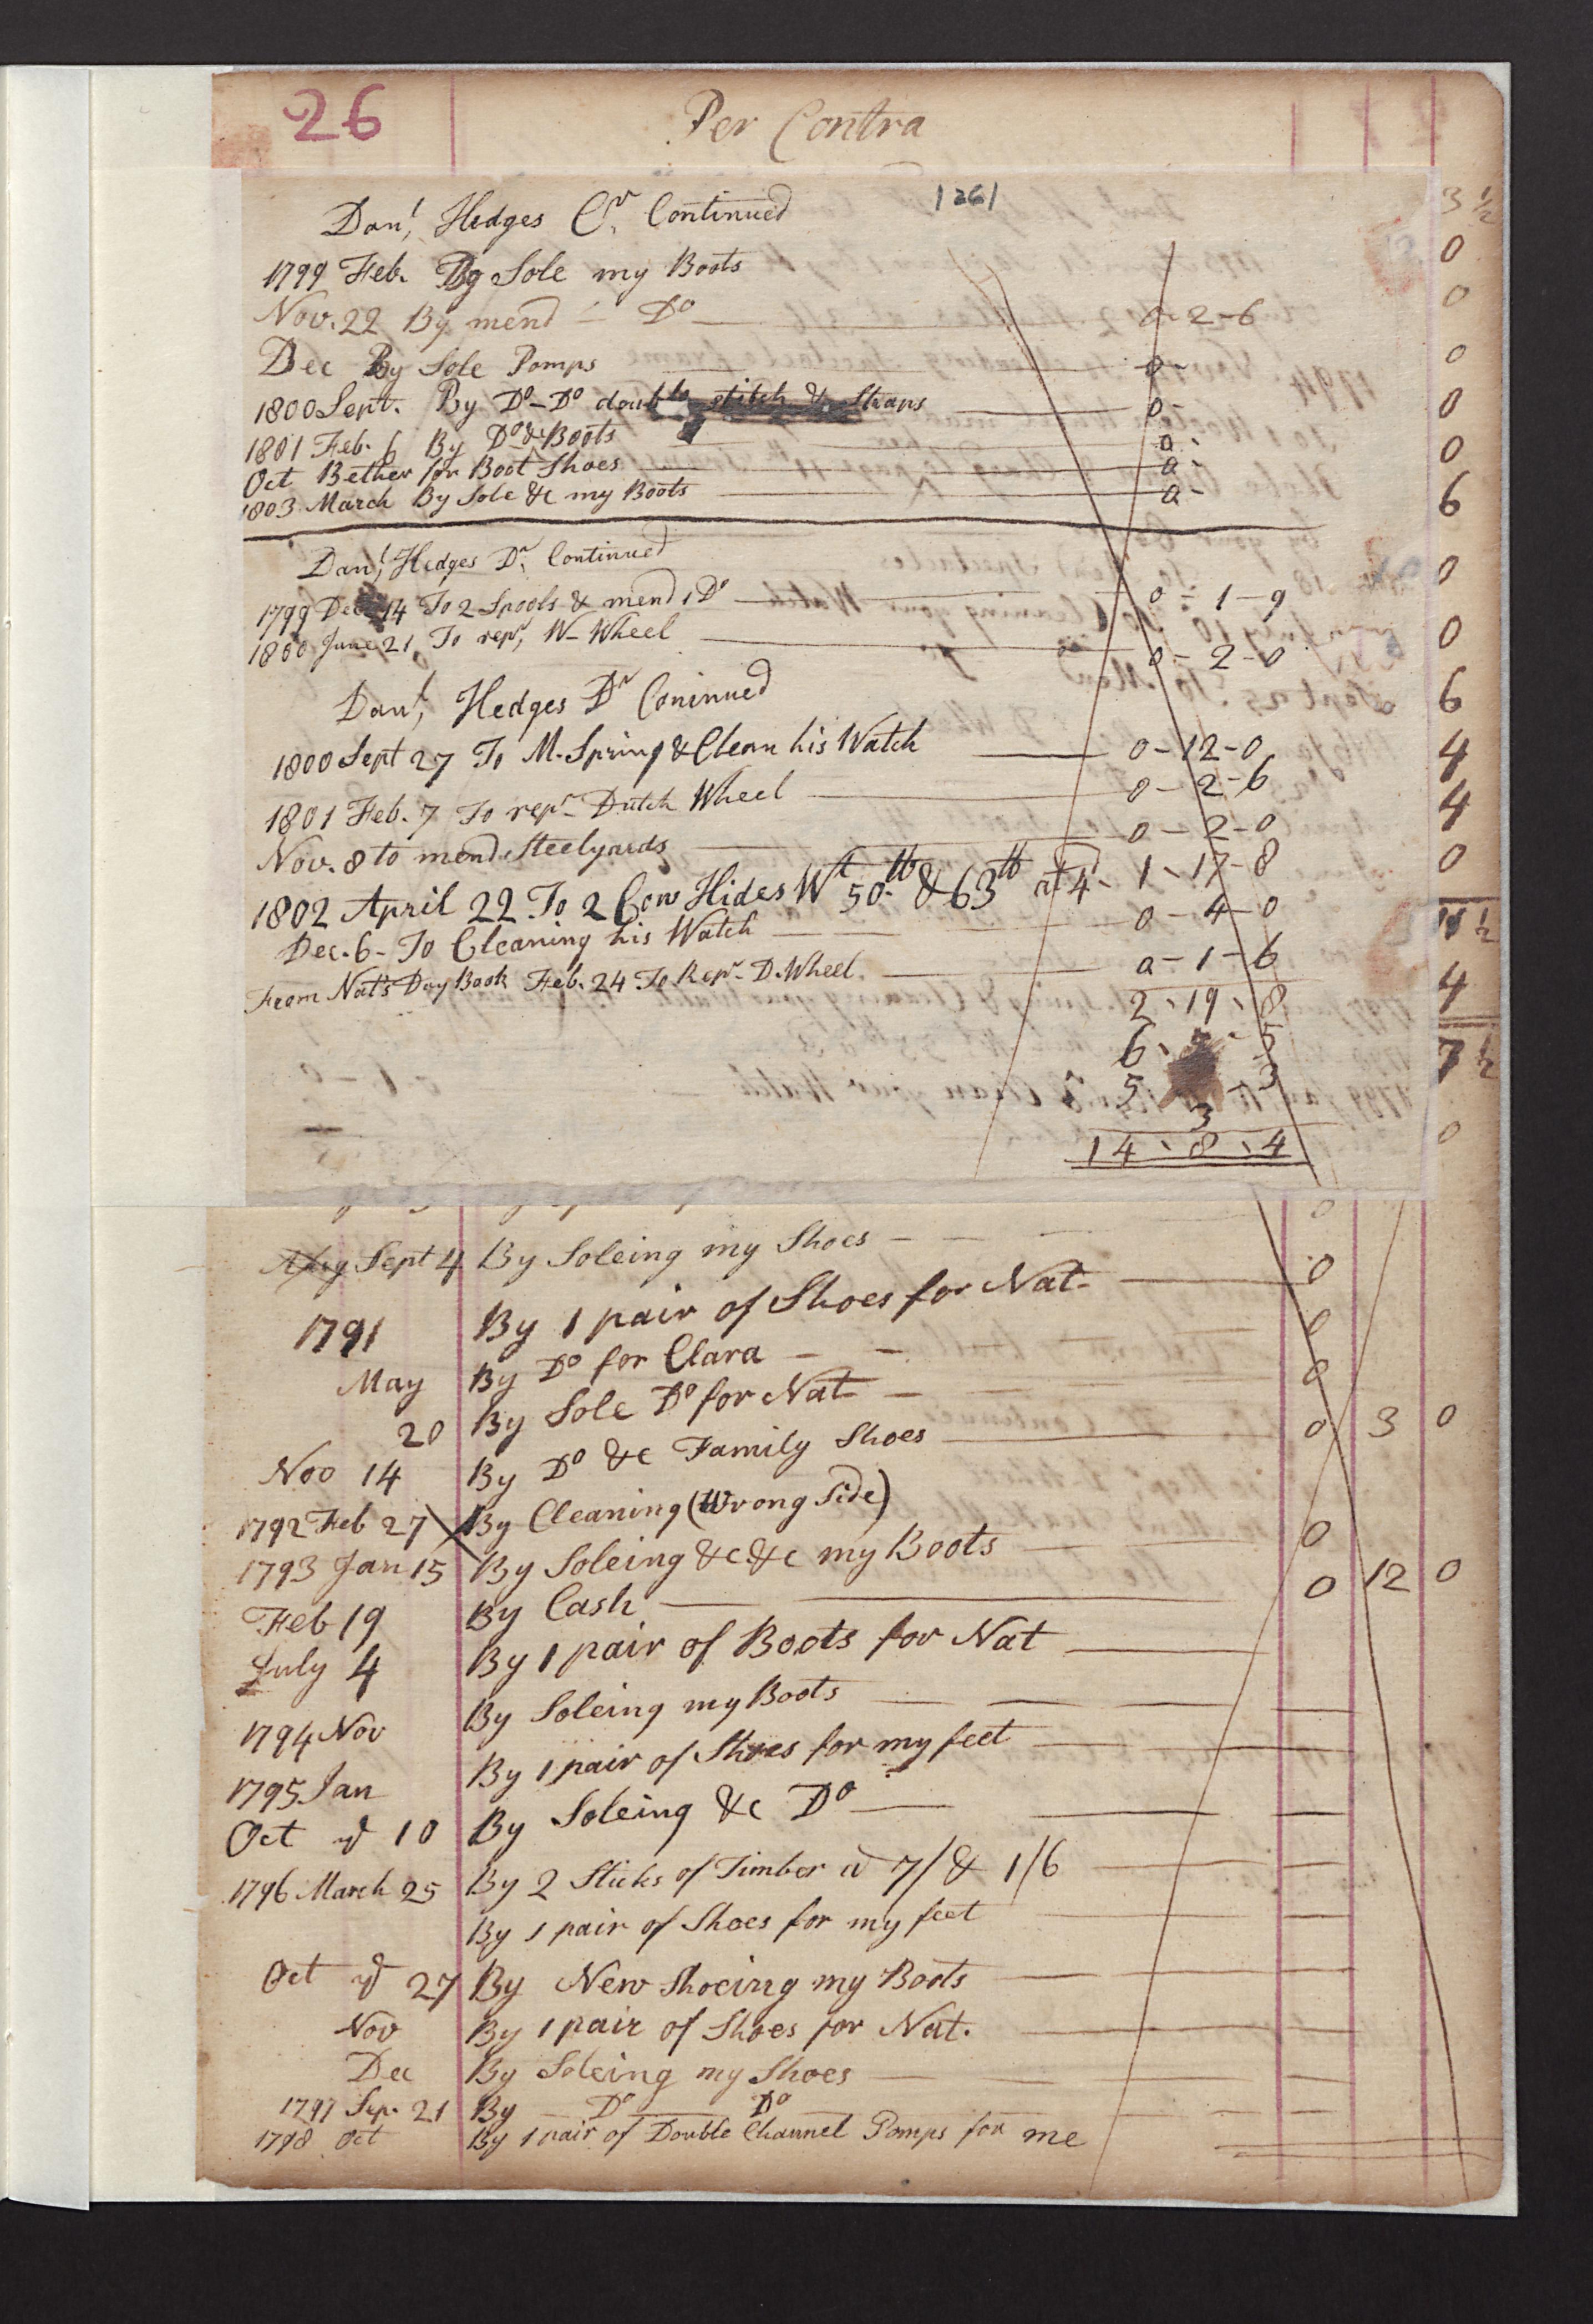 26 Per Contra
|26|
Danl, Hedges Cr, Continued
1799 Feb. By Sole my Boots
Nov. 22 By mend — Do — 0-2-6
Dec By Sole Pomps — 0-
1800 Sept. By Do – Do double stitch & Straps — 0-
1801 Feb. 6 By Do & Boots — 0-
Oct Bether for Boot Shoes — 0-
1803 March By Sole &c my Boots — 0-
Danl, Hedges Dr, Continued
1799 Dec 14 To 2 Spools & mend 1 Do — 0-1-9
1800 June 21 To repr, W- Wheel — 0-2-0
Danl, Hedges Dr Coninued
1800 Sept 27 To M. Spring & Clean his Watch — 0-12-0
1801 Feb. 7 To repr- Dutch Wheel — 0-2-6
Nov. 8 to mend Steelyards — 0-2-0
1802 April 22 To 2 Cow Hides Wt 50 lb & 63 lb at 4d- 1-17-8
Dec. 6 - To Cleaning his Watch — 0-4-0
From Nat's Day Book Feb. 24 To Repr- D. Wheel — 0-1-6
2, 19, 8
6, 5
5 3
3
14, 8, 4
3 ½
0
0
0
0
0
6
0
0
6
4
4
0
½
4
7 ½
0
0
Sept 4 By Soleing my Shoes — 0
1791 By 1 pair of Shoes for Nat- — 0
May By Do for Clara — 0
20 By Sole Do for Nat — 0
Nov 14 By Do &c Family Shoes — 0 3 0
1792 Feb 27 By Cleaning (Wrong Side)
1793 Jan 15 By Soleing &c &c my Boots — 0
Feb 19 By Cash — 0 12 0
July 4 By 1 pair of Boots for Nat —
1794 Nov By Soleing my Boots —
1795 Jan By 1 pair of Shoes for my feet —
Oct 10 By Soleing &c Do —
1796 March 25 By 2 Sticks of Timber a 7/ & 1/6 —
By 1 pair of Shoes for my feet —
Oct 27 By New Shoeing my Boots —
Nov By 1 pair of Shoes for Nat. —
Dec By Soleing my Shoes —
1797 Sep. 21 By — Do — Do —
1798 Oct By 1 pair of Double Channel Pomps for me